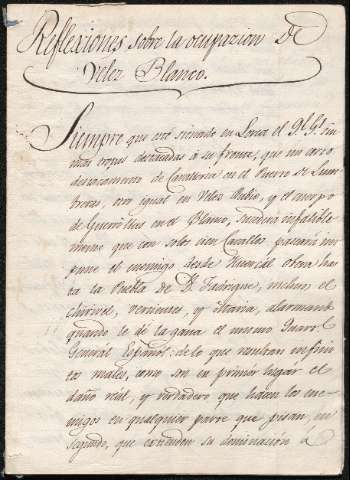 Reflexiones sobre la ocupazion de
Velez Blanco.
Siempre que esté situado en Lorca el Ql. Gl. sin
mas tropas destinadas á su frente, que un corto
destacamento de Cavalleria en el Puerto de Lum
breras, otro igual en Velez Rubio, y el cuerpo
de Guerrillas en el Blanco, sucederá infalible
mente que con solos cien Cavallos, paseará im
pune el enemigo desde Huercal obera has
ta la Puebla de D. Fadrique, inclusos el
chirivel, vertientes, y Maria, alarmando
quando le dé la gana el mismo Quartl.
General Español: de lo que resultan infini
tos males, como son en primer lugar el
daño real, y verdadero que hacen los ene
migos en qualquier parte que pisan, en
segundo, que extienden su dominacion á